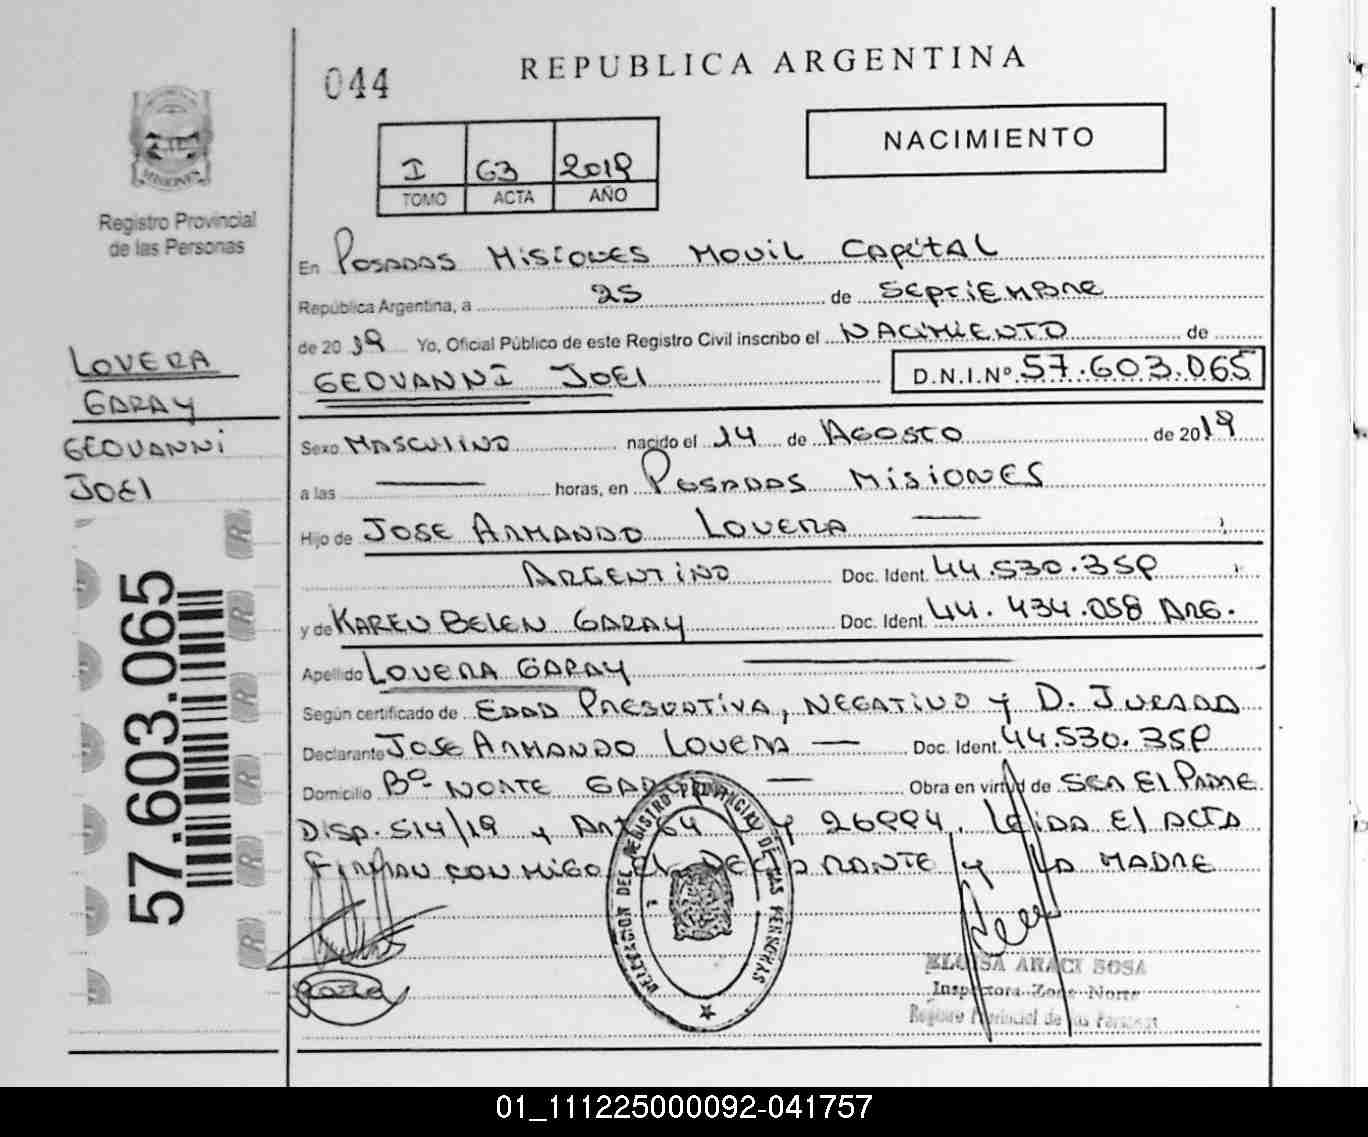 044
REPUBLICA ARGENTINA
NACIMIENTO
I 63 2019
TOMO ACTA AÑO
MISIONES
Registro Provincial
de las Personas
En POSADAS MISIONES MOVIL CAPITAL
República Argentina, a 25 de SEPTIEMBRE
de 2019 Yo, Oficial Público de este Registro Civil inscribo el NACIMIENTO de
GEOVANNI JOEl D.N.I.Nº 57.603.065
LOVERA
GARAY
GEOVANNi
JOEl
Sexo MASCULINO nacido el 14 de AGOSTO de 2019
a las — horas, en POSADAS MISIONES
Hijo de JOSE ARMANDO LOVERA —
ARGENTINO Doc. Ident. 44.530.359
y de KAREN BELEN GARAY Doc. Ident. 44.434.058 ARG.
Apellido LOVERA GARAY —
Según certificado de EDAD PRESUNTIVA, NEGATIVO y D. JURADA
Declarante JOSE ARMANDO LOVERA — Doc. Ident. 44.530.359
Domicilio Bº NORTE GARAY — Obra en virtud de SER El PADRE
DISP. 514/19 y ART 64 LEY 26994. LEIDA El ACTA
FIRMAN CONMIGO EL DECLARANTE y LA MADRE
57.603.065
DELEGACION DEL REGISTRO PROVINCIAL DE LAS PERSONAS
ELOISA ARACI SOSA
Inspectora Zona Norte
Registro Provincial de las Personas
01_111225000092-041757